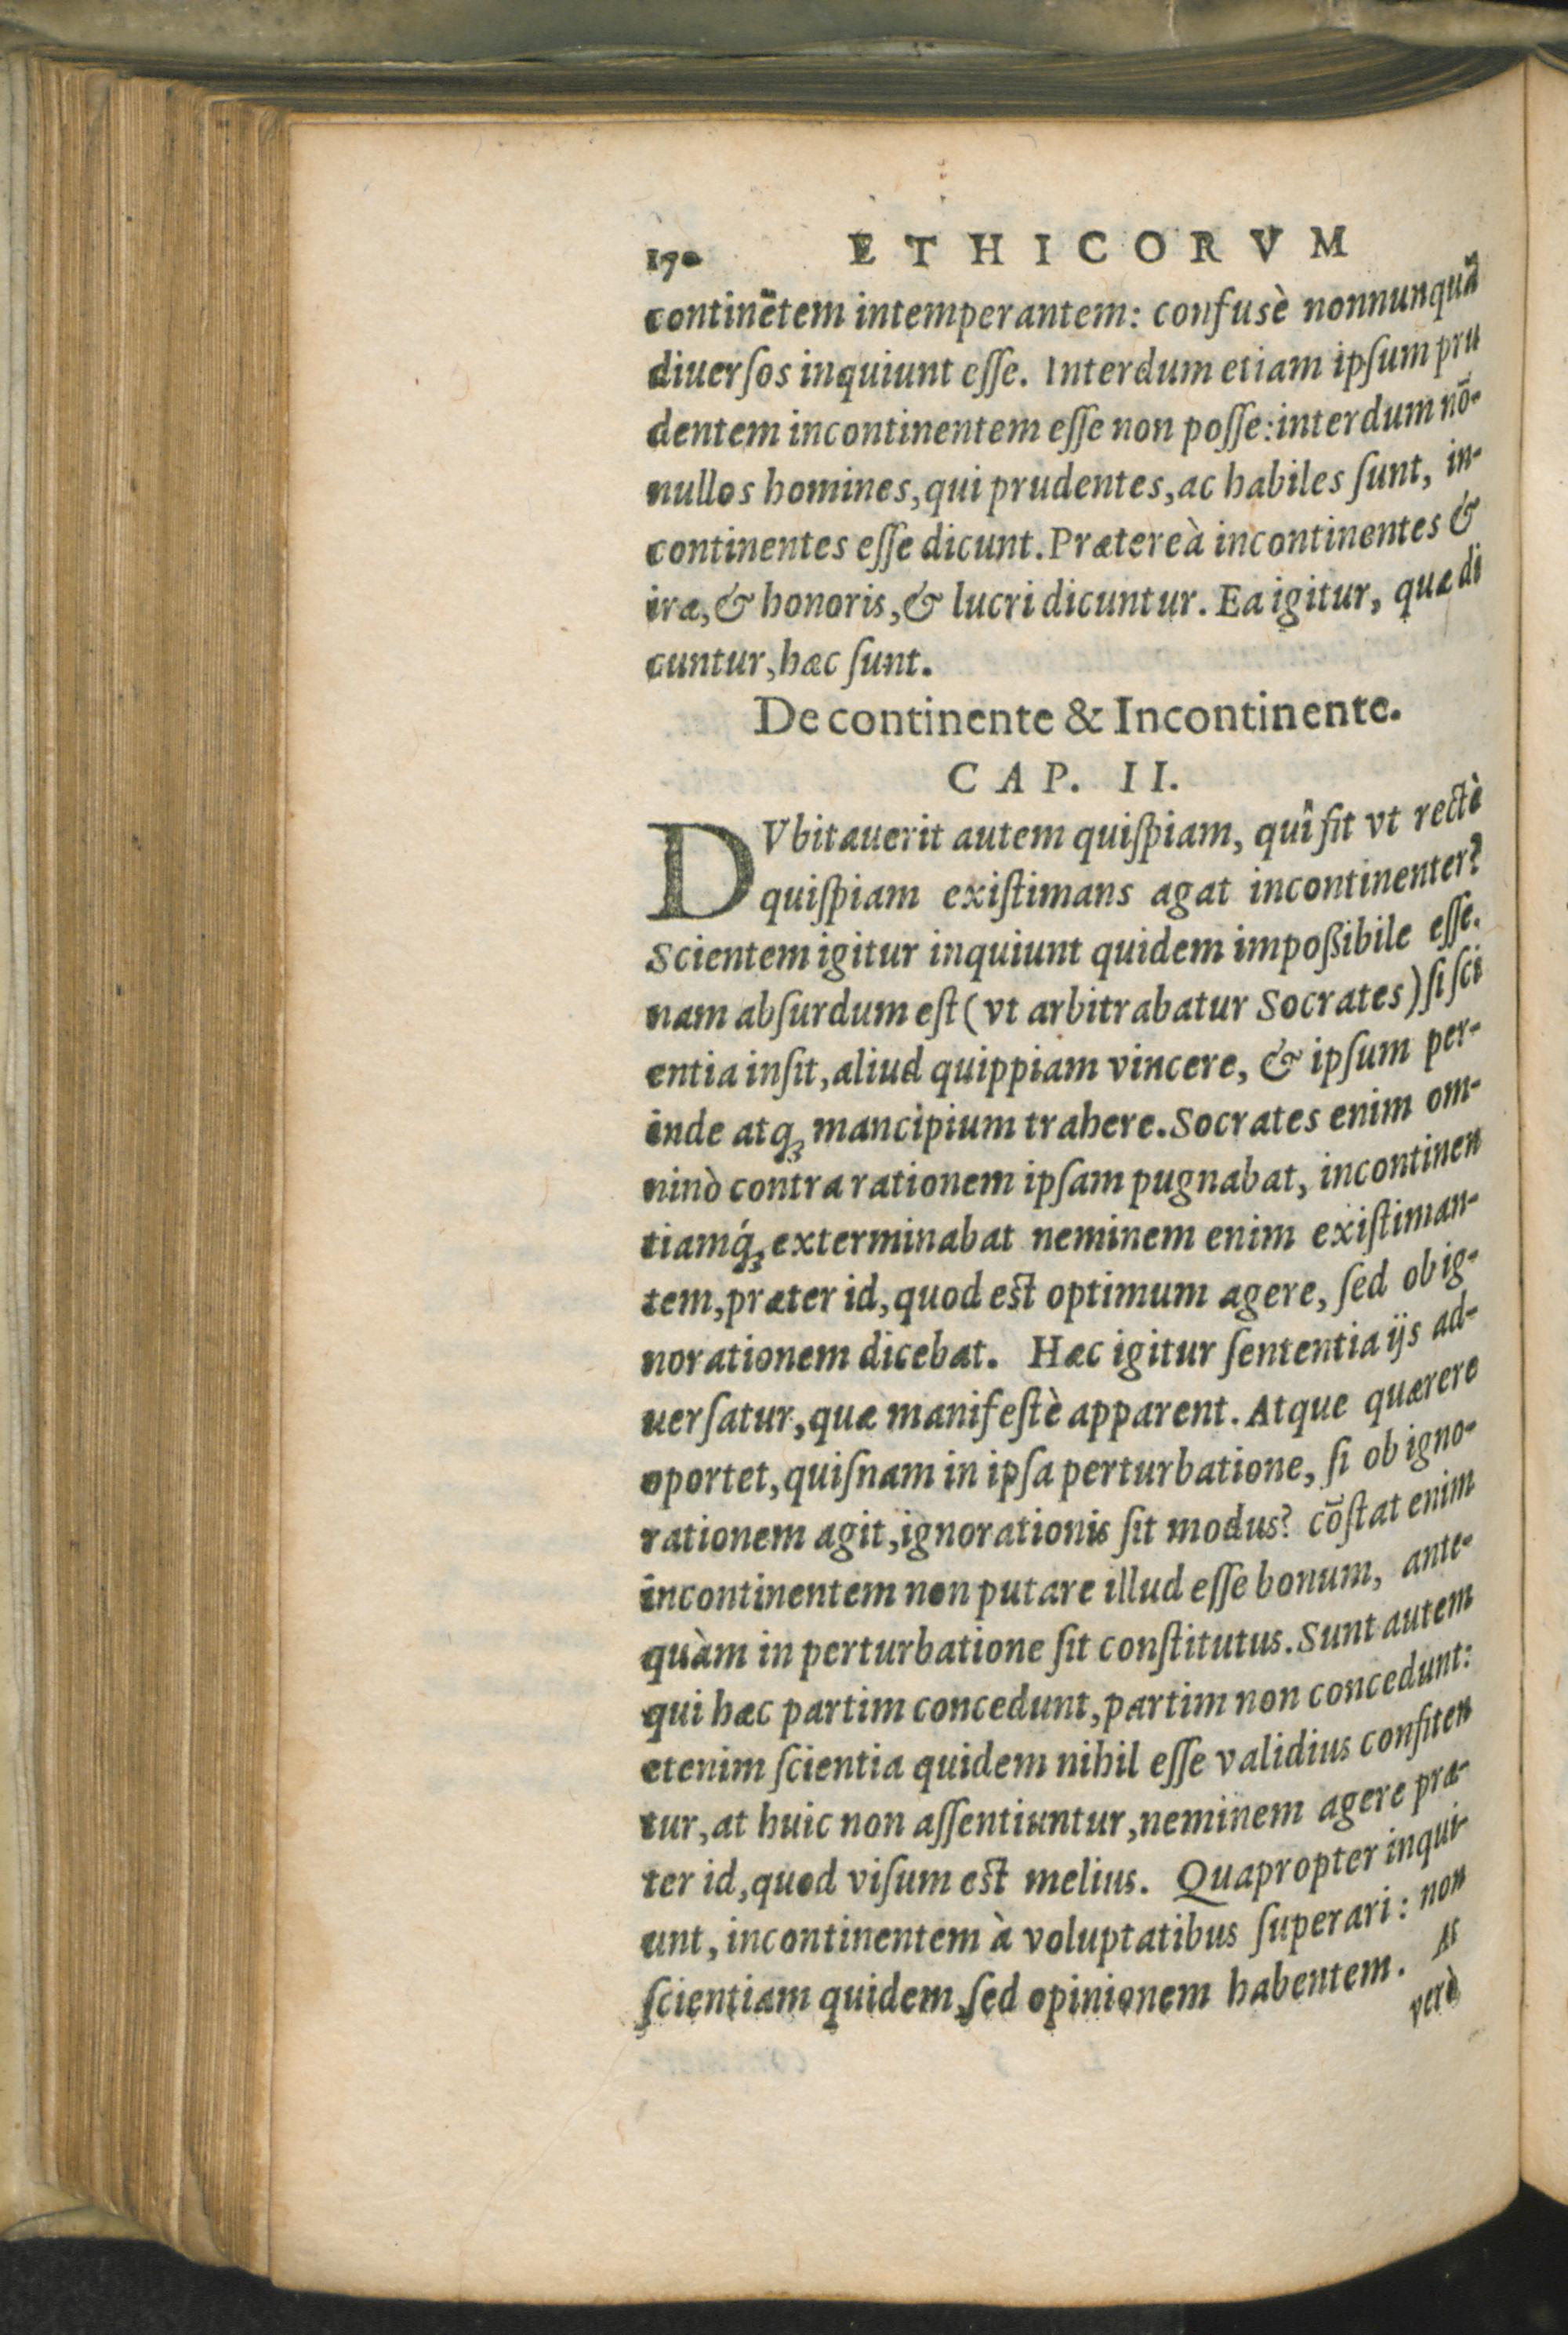 170 ETHICORVM
continētem intemperantem: confusè nonnunquā
diuerſos inquiunt eſſe. Interdum etiam ipſum pru
dentem incontinentem eſſe non poſſe: interdum nō-
nullos homines, qui prudentes, ac habiles ſunt, in-
continentes eſſe dicunt. Prætereà incontinentes &
iræ, & honoris, & lucri dicuntur. Ea igitur, quæ di
cuntur, hæc ſunt.
De continente & Incontinente.
CAP. II.
DVbitauerit autem quiſpiam, quî fit vt rectè
quiſpiam exiſtimans agat incontinenter?
Scientem igitur inquiunt quidem impoßibile eſſe.
nam abſurdum eſt (vt arbitrabatur Socrates) ſi ſci
entia inſit, aliud quippiam vincere, & ipſum per-
inde atq; mancipium trahere. Socrates enim om-
ninò contra rationem ipſam pugnabat, incontinen
tiamq́; exterminabat neminem enim exiſtiman-
tem, præter id, quod est optimum agere, ſed ob ig-
norationem dicebat. Hæc igitur ſententia ijs ad-
uerſatur, quæ manifeſtè apparent. Atque quærere
oportet, quiſnam in ipſa perturbatione, ſi ob igno-
rationem agit, ignorationis ſit modus? cōſtat enim
incontinentem non putare illud eſſe bonum, ante-
quàm in perturbatione ſit conſtitutus. Sunt autem
qui hæc partim concedunt, partim non concedunt:
etenim ſcientia quidem nihil eſſe validius confiten
tur, at huic non aſſentiuntur, neminem agere præ-
ter id, quod viſum est melius. Quapropter inqui-
unt, incontinentem à voluptatibus ſuperari: non
ſcientiam quidem, ſed opinionem habentem. At
verò